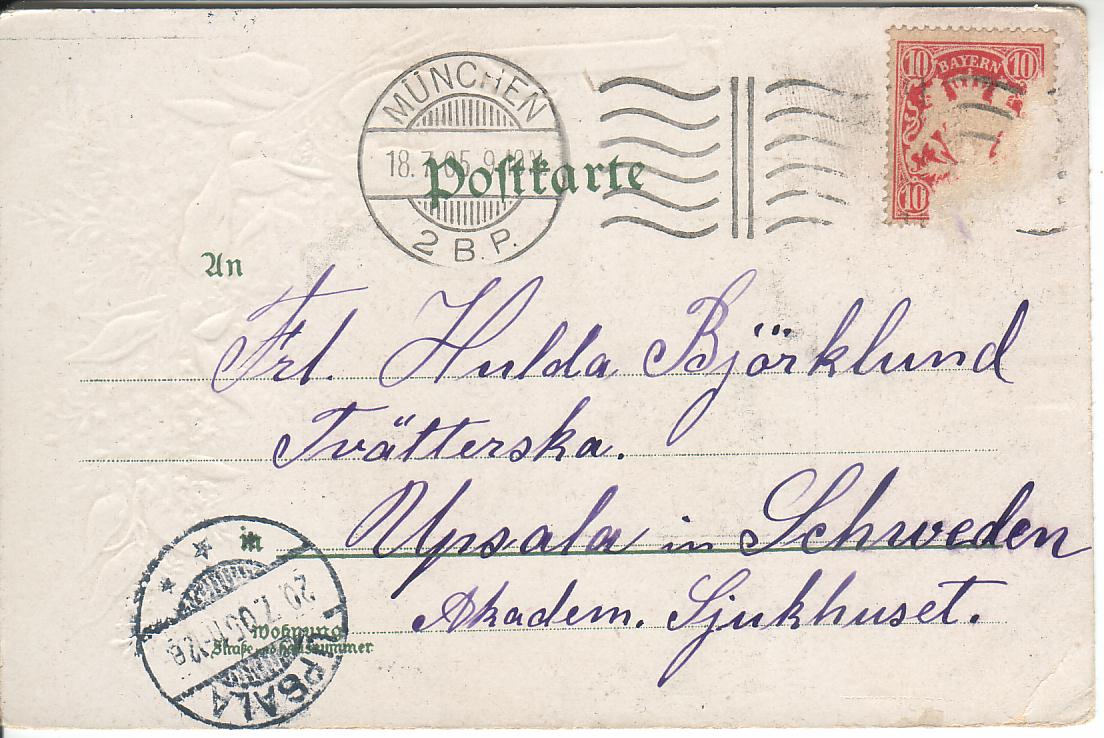 MÜNCHEN
18.7.05.9
2 B.P.
10 BAYERN 10
10
Postkarte
An
Frl. Hulda Björklund
Tvätterska.
in Upsala in Schweden
Akadem. Sjukhuset.
Wohnung
Straße und Hausnummer
20.7.05
UPSALA